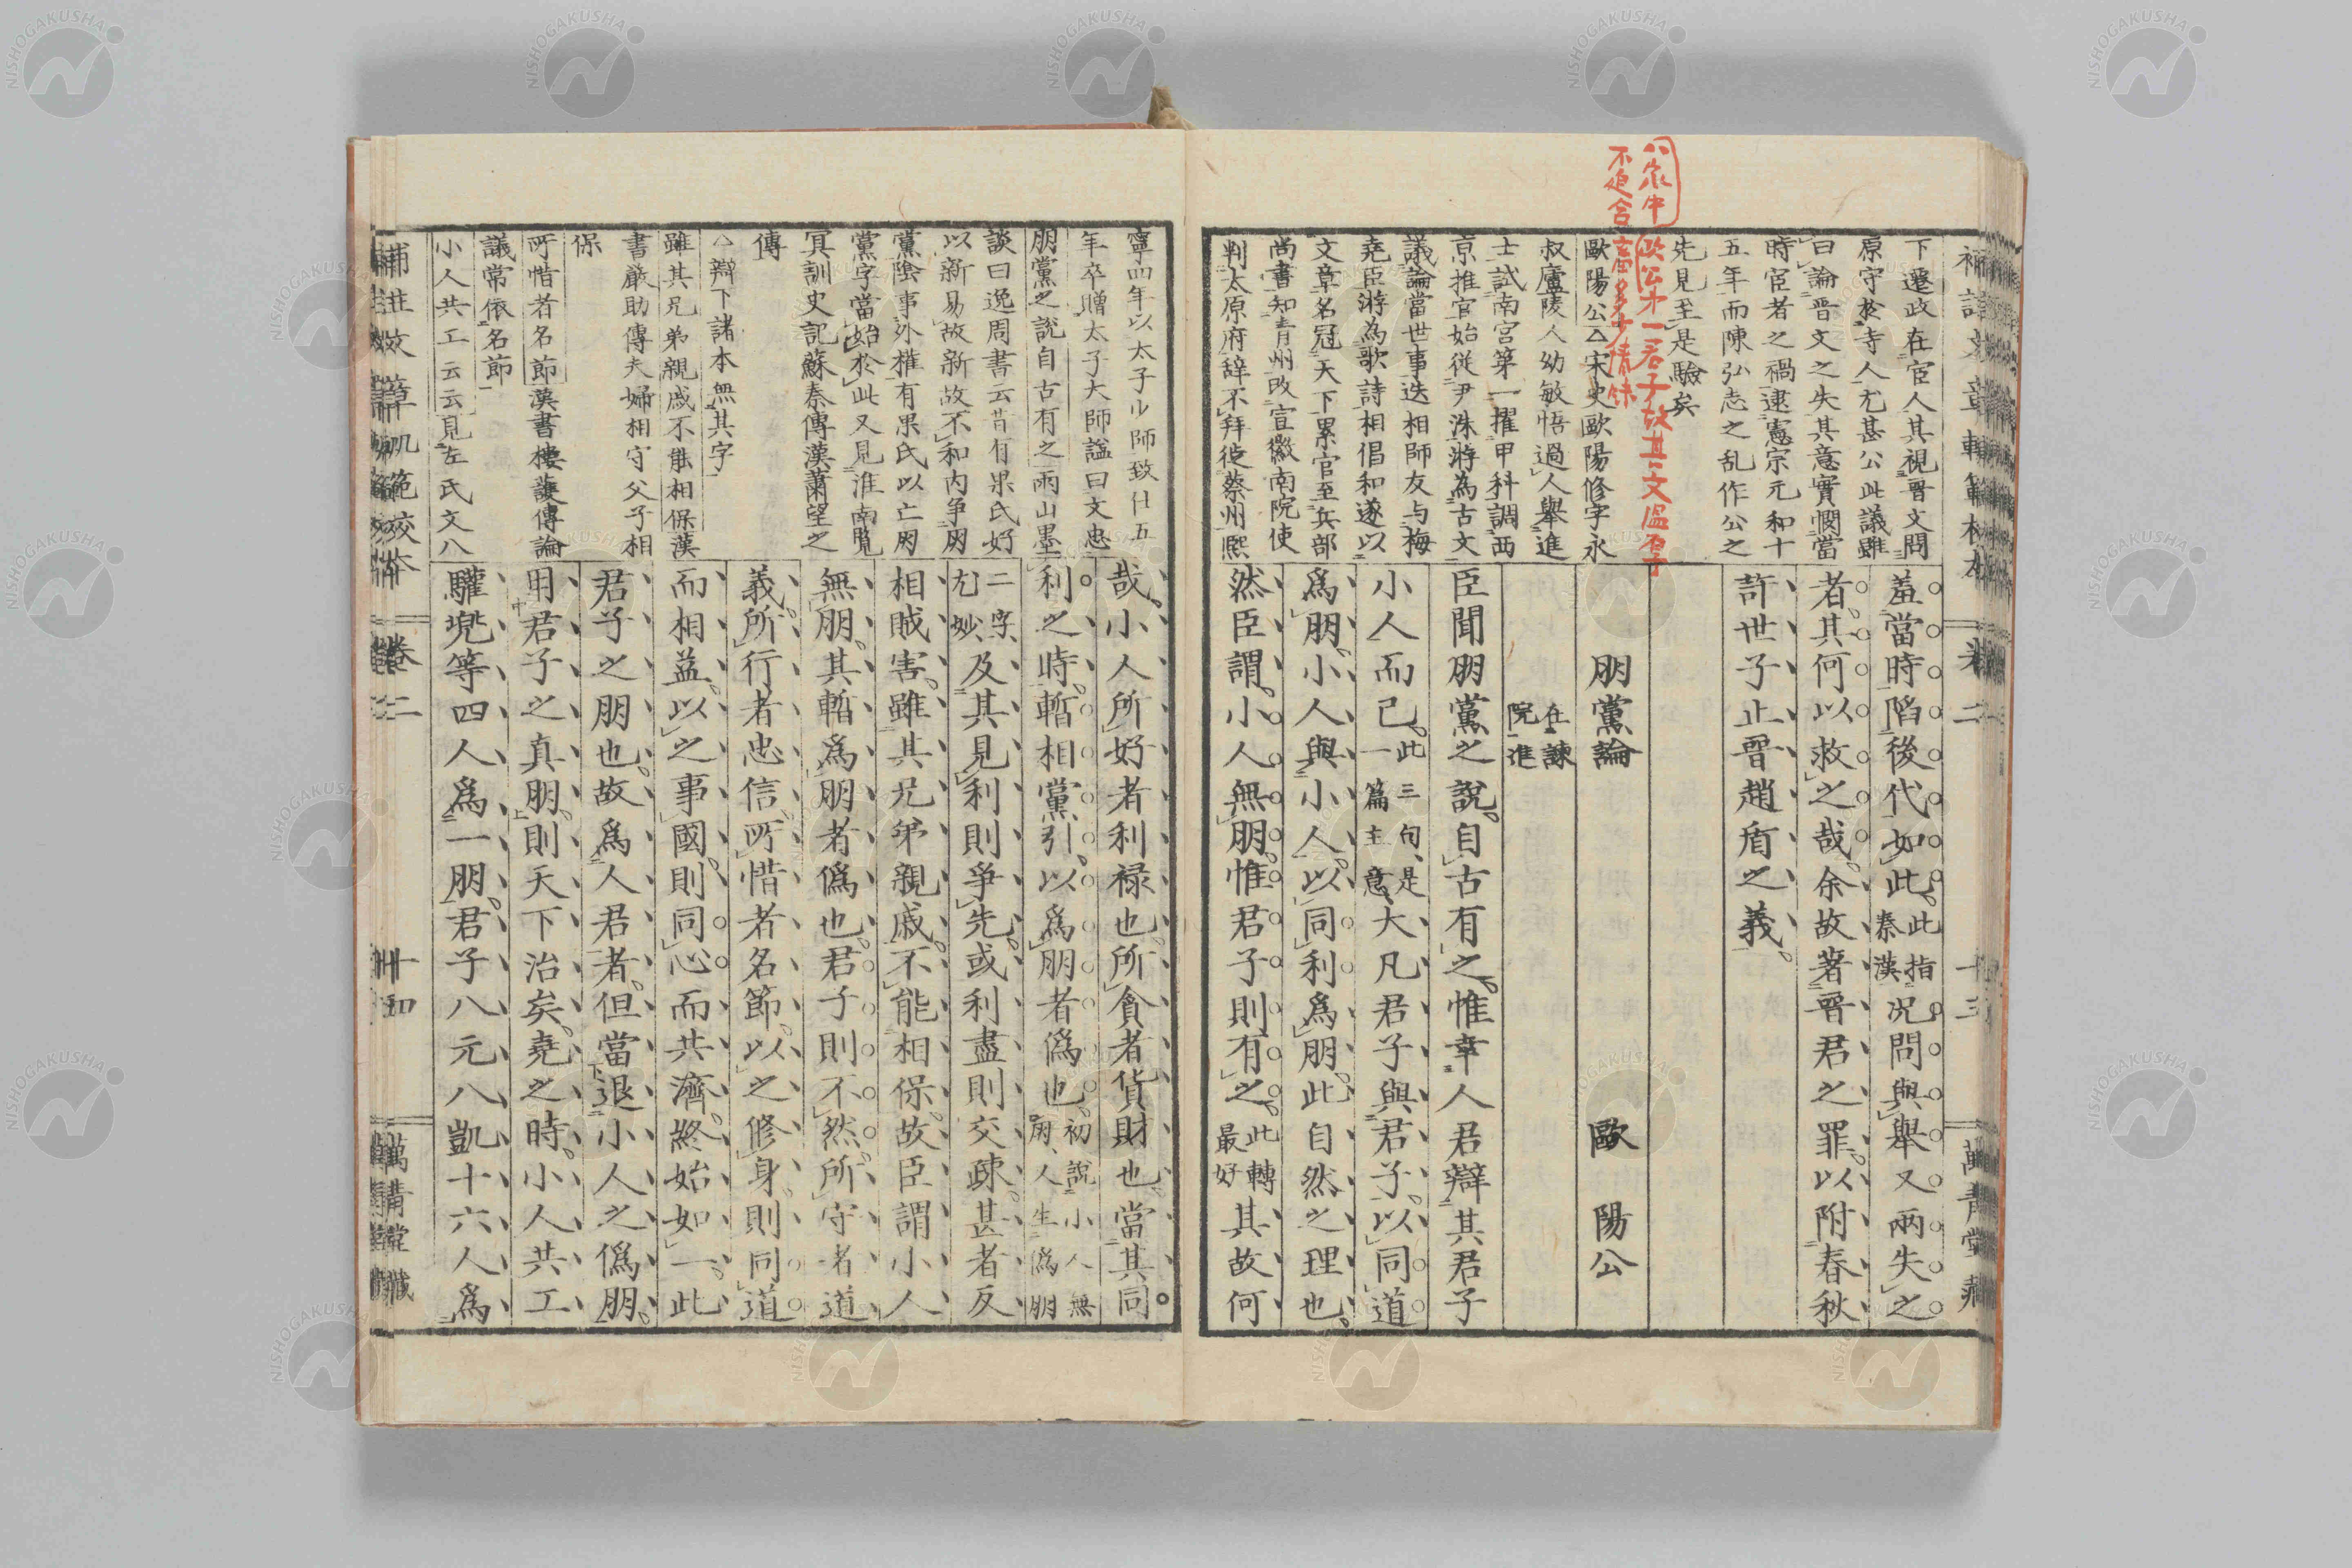 八家中欧公才一君子故其文温厚
不迫含畜多少情味
下遷政在宦人其視晋文問
原守於寺人尤甚公此議雖
曰論晋文之失其意實憫當
時宦者之禍逮憲宗元和十
五年而陳弘志之乱作公之
先見至是驗矣
歐陽公云宋史歐陽修字永
叔廬陵人幼敏悟過人舉進
士試南宮第一擢甲科調西
京推官始從尹洙游為古文
議論當世事迭相師友与梅
堯臣游為歌詩相倡和遂以
文章名冠天下累官至兵部
尚書知青州改宣徽南院使
判太原府辞不拜徙蔡州熙
羞當時陷後代如此此指秦漢況問與舉又兩失之
者其何以救之哉余故著晉君之罪以附春秋
許世子止晉趙盾之義
朋黨論 歐陽公
在諫院進
臣聞朋黨之說自古有之惟幸人君辯其君子
小人而已此三句是一篇主意大凡君子與君子以同道
爲朋小人與小人以同利爲朋此自然之理也
然臣謂小人無朋惟君子則有之此轉最好其故何
補註文章軌範校本 卷二 十三 萬青堂藏
寧四年以太子少師致仕五
年卒贈太子大師諡曰文忠
朋黨之説自古有之兩山墨
談曰逸周書云昔有果氏好
以新易故新故不和内争朋
黨陰事外權有果氏以亡朋
黨字當始於此又見淮南覧
冥訓史記蘇秦傳漢蕭望之
傳
辯下諸本無其字
雖其兄弟親戚不能相保漢
書嚴助傳夫婦相守父子相
保
所惜者名節漢書樓護傳論
議常依名節
小人共工云云見左氏文八
哉小人所好者利祿也所貪者貨財也當其同
利之時暫相黨引以爲朋者僞也初說小人無朋人生僞朋
二字尤妙及其見利則爭先或利盡則交疎甚者反
相賊害雖其兄弟親戚不能相保故臣謂小人
無朋其暫爲朋者僞也君子則不然所守者道
義所行者忠信所惜者名節以之修身則同道
而相益以之事國則同心而共濟終始如一此
君子之朋也故爲人君者但當退小人之僞朋
用君子之真朋則天下治矣堯之時小人共工
驩兜等四人爲一朋君子八元八凱十六人爲
補註文章軌範校本 卷二 十四 萬青堂藏
NISHOGAKUSHA